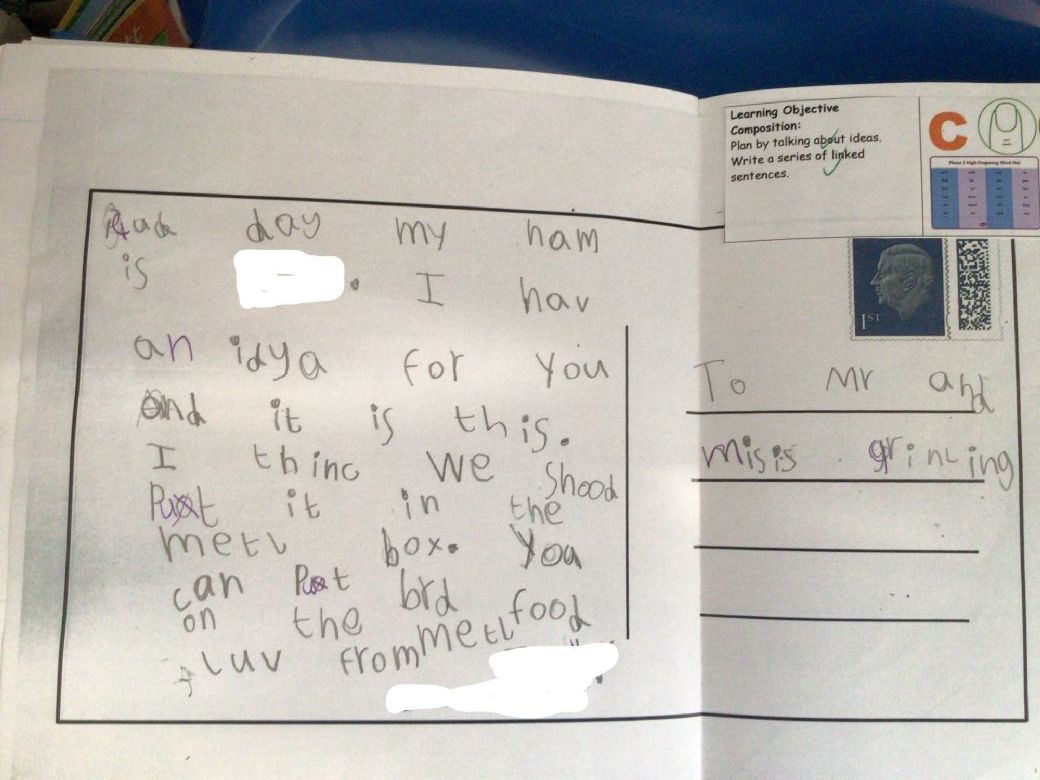 Gud day my nam
is . I hav
an idya for you
and it is this.
I thinc we shood
Put it in the
metl box. You
can Put brd food
on the metl
Luv from
Learning Objective
Composition:
Plan by talking about ideas.
Write a series of linked
sentences.
C
1ST
To Mr and
misis grinling